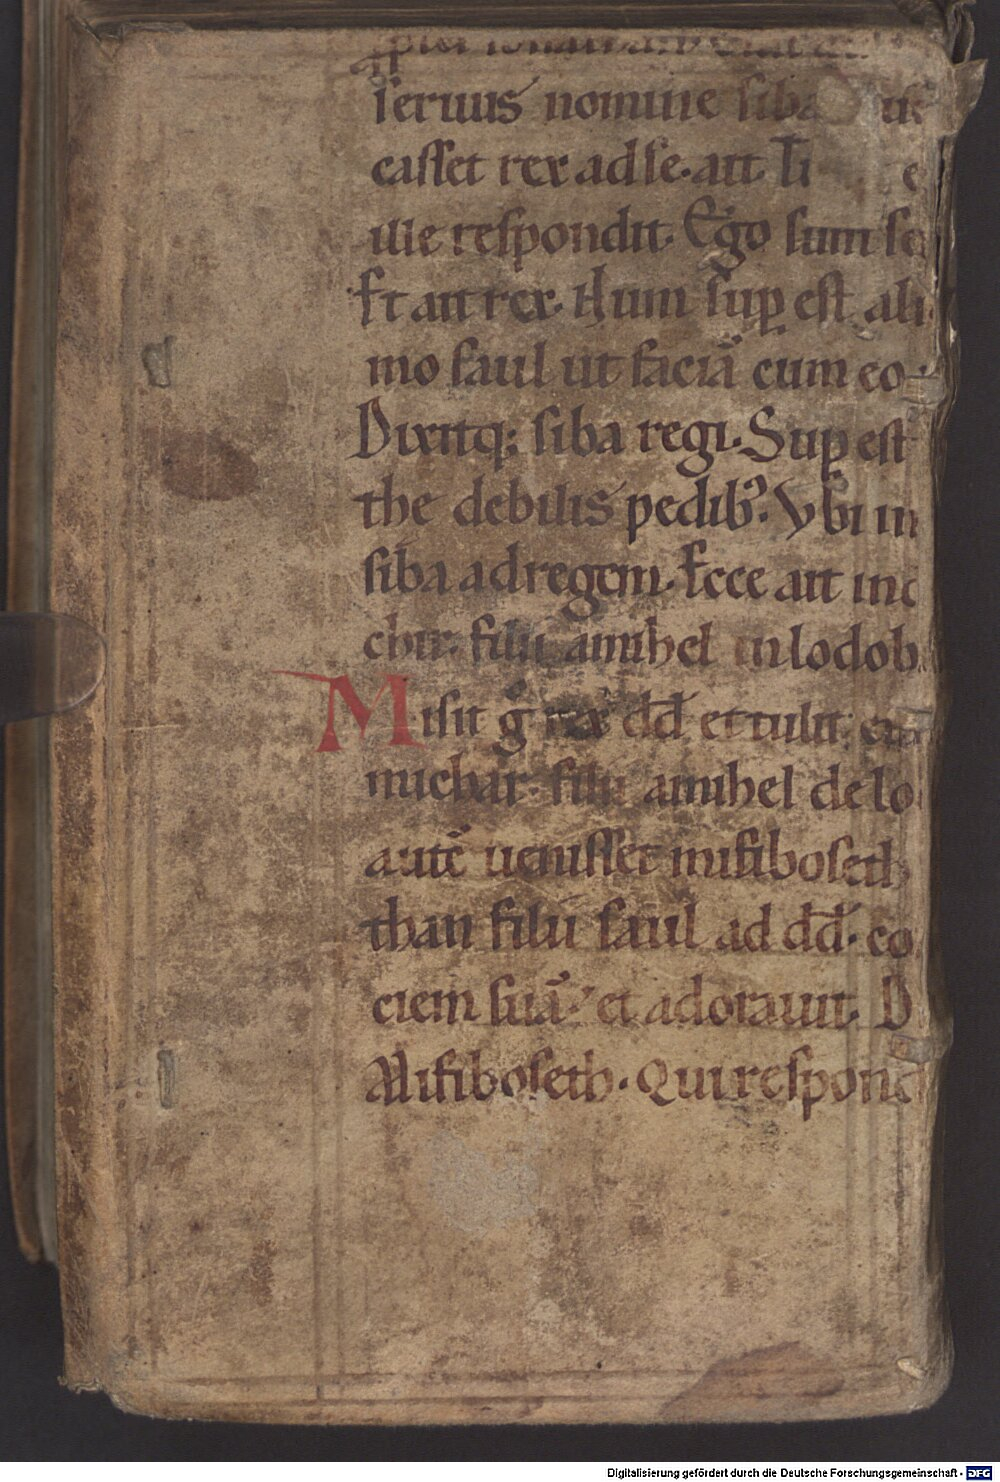 seruus nomine siba
casset rex ad se. ait
ille respondit. Ego sum
Et ait rex. Num sup̱ est ali
mo saul ut faciā cum eo
Dixitq; siba regi. Sup̱ est
the debilis pedib᷒. Vbi in
siba ad regem. Ecce ait in
chir. filii amihel in lodob
Misit g̊ rex dd̄ et tulit
michar filii amihel de lo
autē uenisset mifiboseth
than filii saul ad dd̄. co
ciem suā. et adorauit. D
Mifiboseth. Qui respond
Digitalisierung gefördert durch die Deutsche Forschungsgemeinschaft - DFG